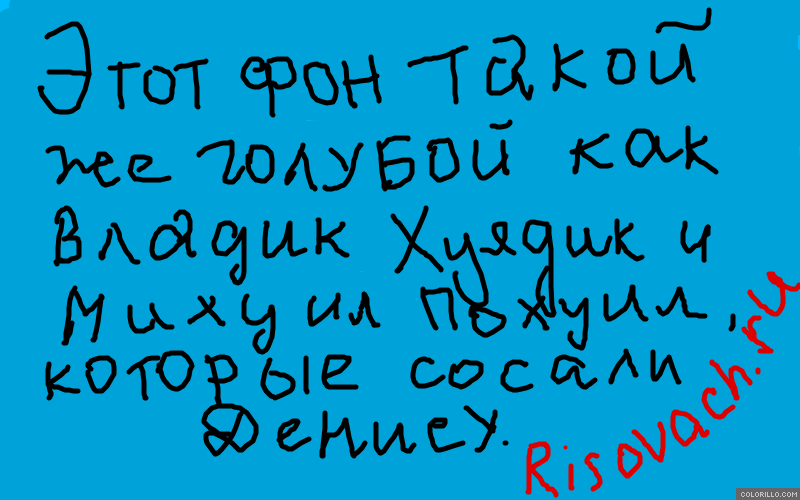 Этот фон такой
же голубой как
Владик Хуядик и
Михуил Похуил,
которые сосали
Денису.
Risovach.ru
COLORILLO.COM